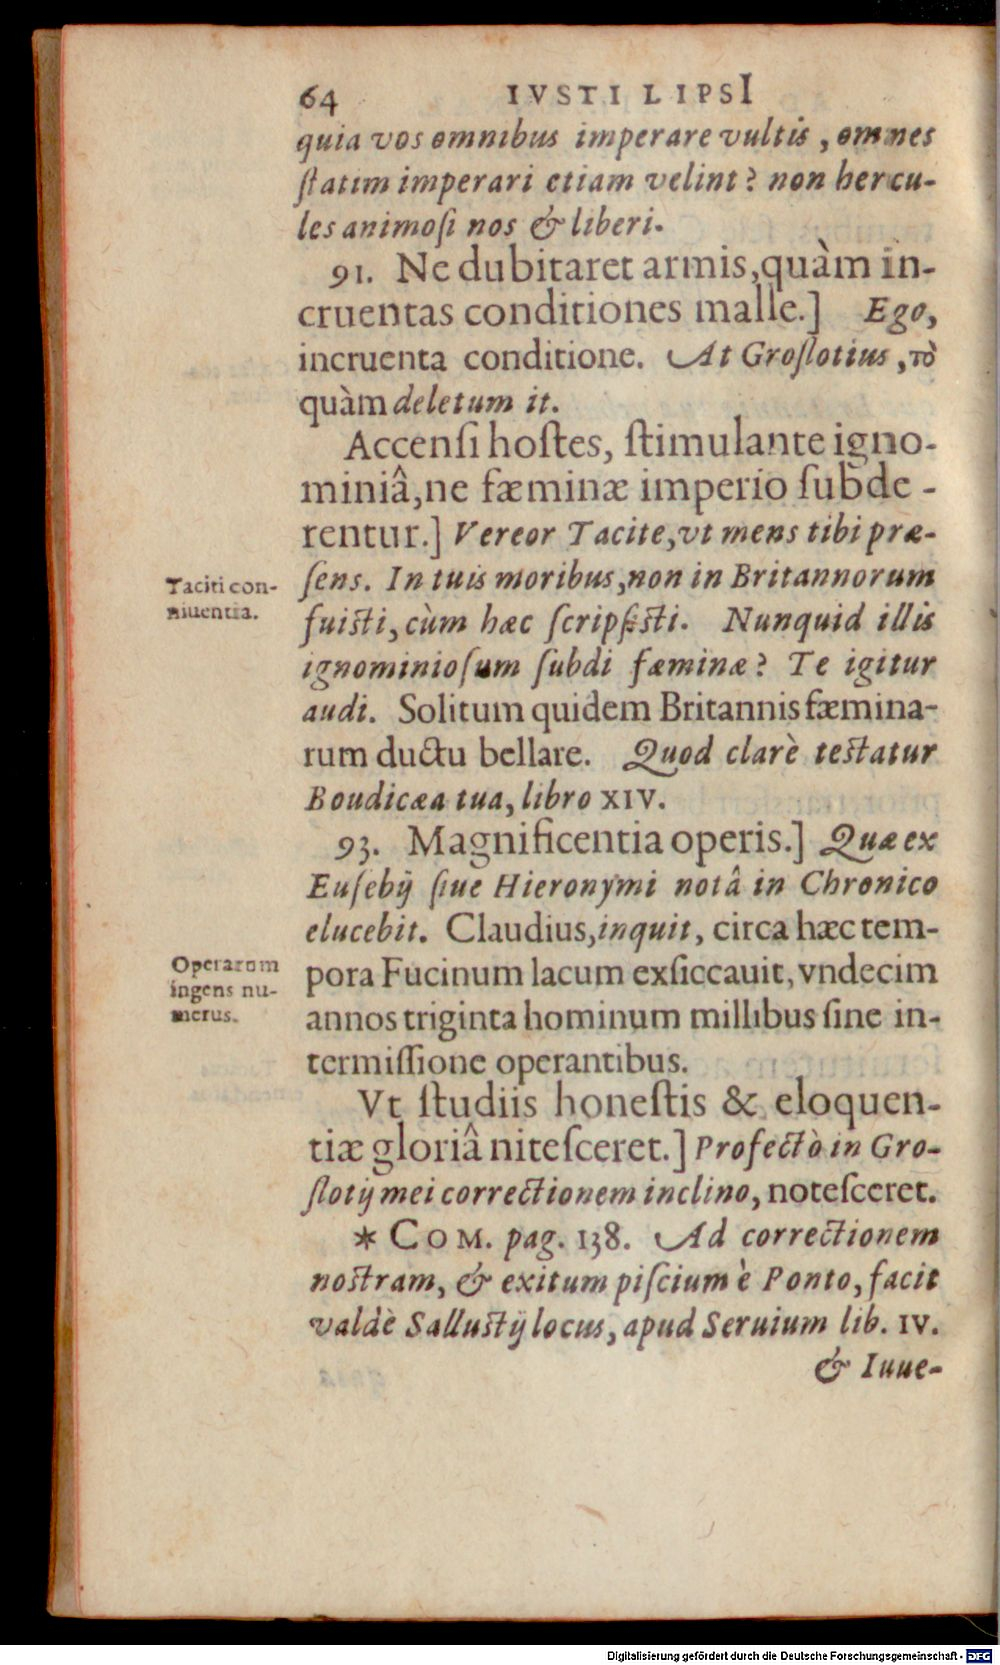 64 IVSTI LIPSI
quia vos omnibus imperare vultis, omnes
ſtatim imperari etiam velint? non hercu-
les animoſi nos & liberi.
91. Ne dubitaret armis, quàm in-
cruentas conditiones malle.] Ego,
incruenta conditione. At Groſlotius, τὸ
quàm deletum it.
Accenſi hoſtes, ſtimulante igno-
miniâ, ne fæminæ imperio ſubde-
rentur.] Vereor Tacite, vt mens tibi præ-
ſens. In tuis moribus, non in Britannorum
Taciti con-
niuentia.
fuiſti, cùm hæc ſcripſiſti. Nunquid illis
ignominioſum ſubdi fæminæ? Te igitur
audi. Solitum quidem Britannis fæmina-
rum ductu bellare. Quod clarè teſtatur
Boudicæa tua, libro XIV.
93. Magnificentia operis.] Quæ ex
Euſebij ſiue Hieronymi notâ in Chronico
elucebit. Claudius, inquit, circa hæc tem-
pora Fucinum lacum exſiccauit, vndecim
Operarum
ingens nu-
merus.
annos triginta hominum millibus ſine in-
termiſſione operantibus.
Vt ſtudiis honeſtis & eloquen-
tiæ gloriâ niteſceret.] Profectò in Gro-
ſlotij mei correctionem inclino, noteſceret.
* COM. pag. 138. Ad correctionem
noſtram, & exitum piſcium è Ponto, facit
valdè Salluſtij locus, apud Seruium lib. IV.
& Iuue-
Digitalisierung gefördert durch die Deutsche Forschungsgemeinschaft - DFG